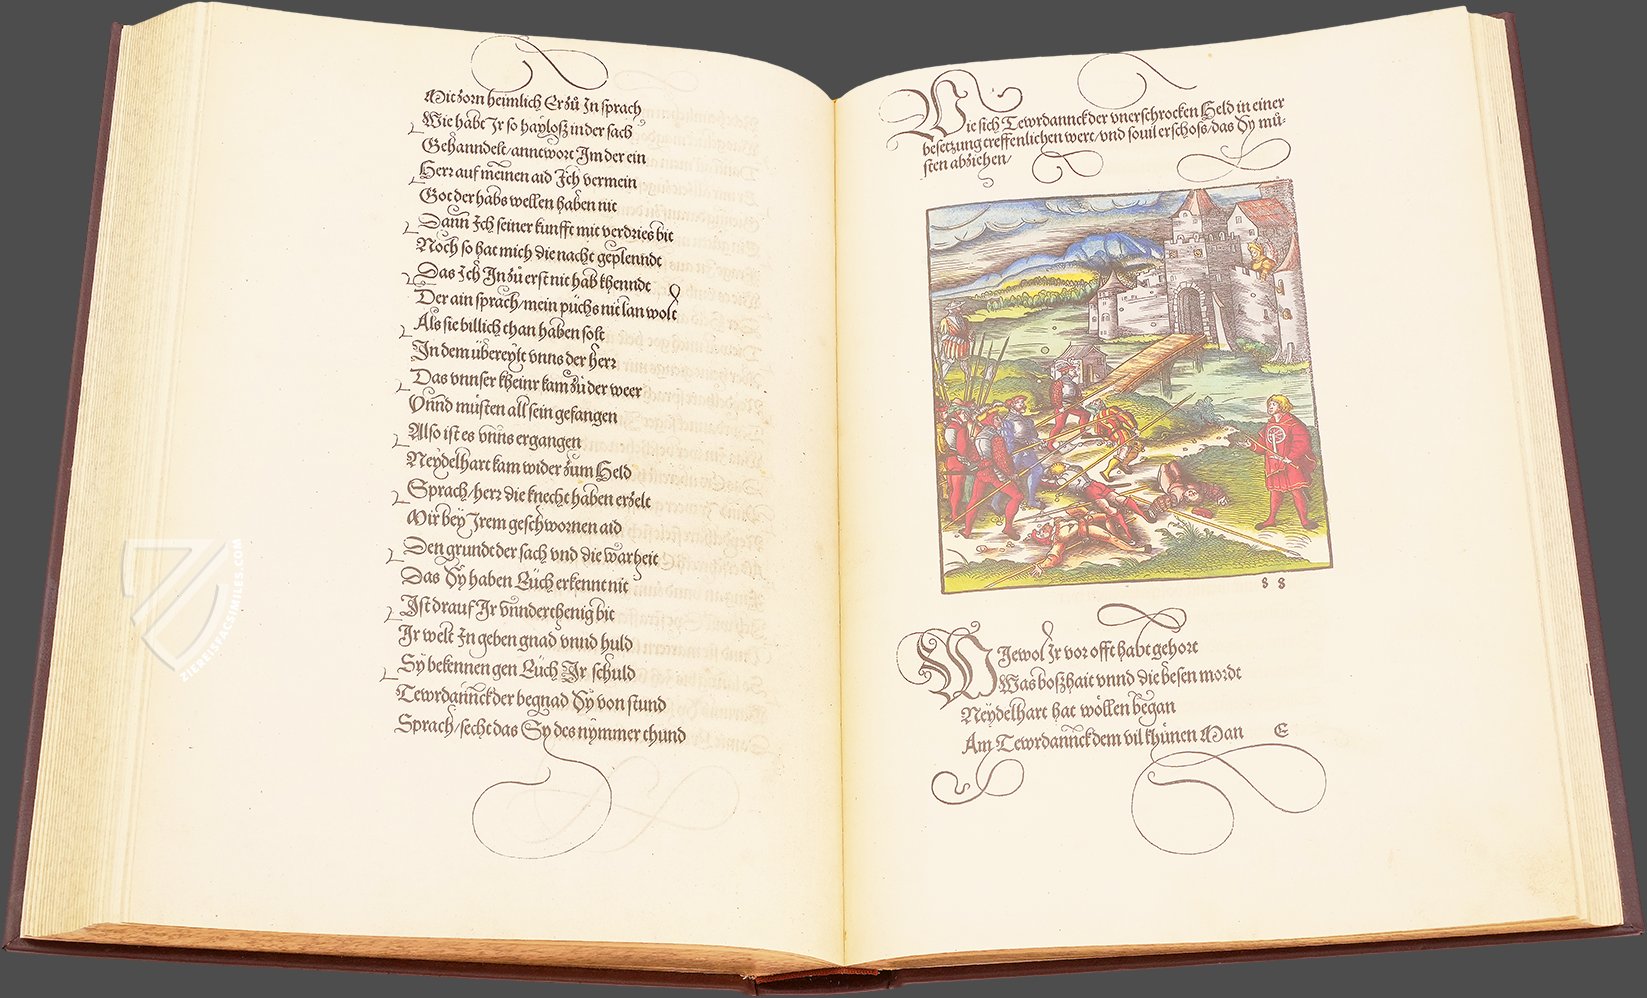 Mit zorn heimlich Er zů In sprach
Wie habt Ir so hayloß in der sach
Gehanndelt/anntwort Im der ein
Herr auf meinen aid Ich vermein
Got der habs wellen haben nit
Dann Ich seiner kunfft mit verdries bit
Noch so hat mich die nacht geplenndt
Das Ich In zů erst nit hab khenndt
Der ain sprach/mein püchs nit lan wolt
Als sie billich than haben solt
In dem übereylt vnns der herr
Das vnnser kheinr kam zů der weer
Vnnd musten all sein gefangen
Also ist es vnns ergangen
Neydelhart kam wider zum Held
Sprach/herr die knecht haben erzelt
Mir bey Irem geschwornen aid
Den grundt der sach vnd die warheit
Das Sy haben Euch erkennt nit
Ist drauf Ir vnnderthenig bit
Ir welt In geben gnad vnnd huld
Sy bekennen gen Euch Ir schuld
Tewrdannckh der begnad Sy von stund
Sprach/secht das Sy des nymmer thund
Wie sich Tewrdannck der vnerschrocken Held in einer
besetzung treffenlichen wert/vnd souil erschoss/das Sy mů-
sten abziehen/
88
Wiewol Ir vor offt habt gehort
Was boßhait vnnd die besen mordt
Neydelhart hat wöllen began
Am Tewrdannck dem vil khünen Man E
ZIEREISFACSIMILES.COM